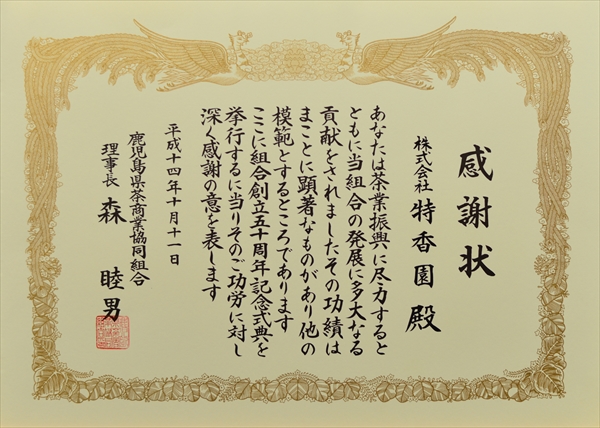 感謝状
株式会社 特香園 殿
あなたは茶業振興に尽力すると
ともに当組合の発展に多大なる
貢献をされましたその功績は
まことに顕著なものがあり他の
模範とするところであります
ここに組合創立五十周年記念式典を
挙行するに当りそのご功労に対し
深く感謝の意を表します
平成十四年十月十一日
鹿児島県茶商業協同組合
理事長 森 睦男